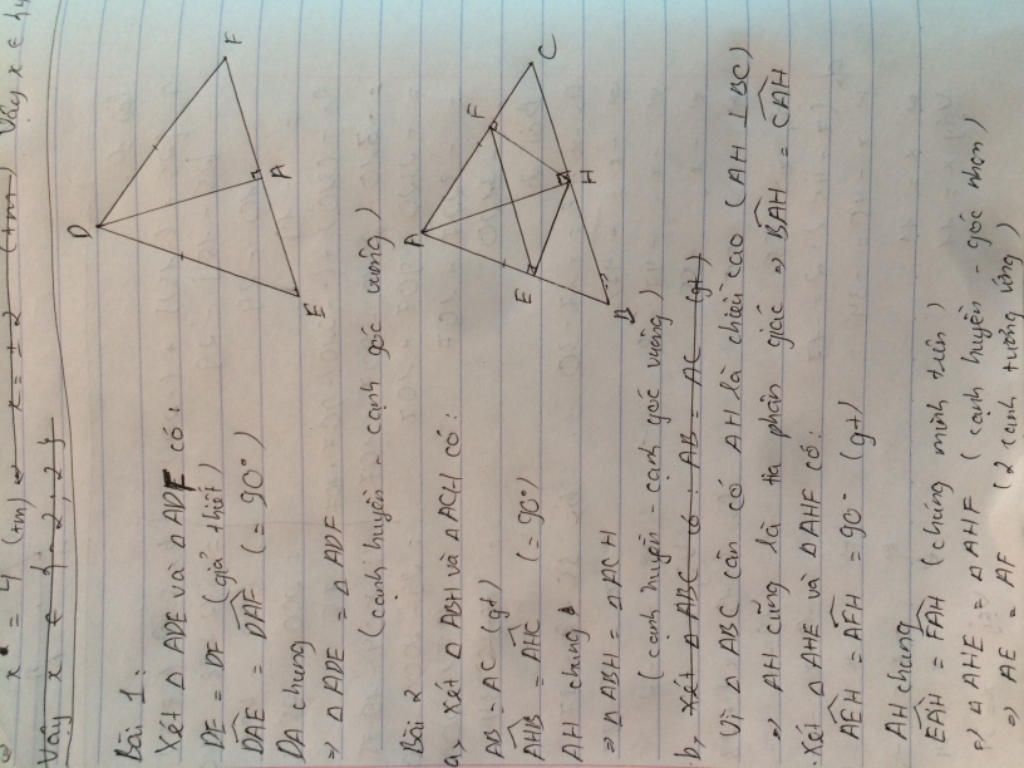 x = 4 (tm) x = ±2 (tm) Vậy x ∈
Vậy x ∈ {-2; 2}
Bài 1:
Xét Δ ADE và Δ ADF có:
DE = DF (giả thiết)
DAE = DAF (= 90°)
DA chung
⇒ Δ ADE = Δ ADF
(cạnh huyền - cạnh góc vuông)
D
F
A
E
Bài 2
a, Xét Δ ABH và Δ ACH có:
AB = AC (gt)
AHB = AHC (= 90°)
AH chung
⇒ Δ ABH = Δ ACH
(cạnh huyền - cạnh góc vuông)
A
F
C
E
H
B
b, Xét Δ ABC có: AB = AC (gt)
Vì Δ ABC cân có AH là chiều cao (AH ⊥ BC)
⇒ AH cũng là tia phân giác ⇒ BAH = CAH
Xét Δ AHE và Δ AHF có:
AEH = AFH = 90° (gt)
AH chung
EAH = FAH (chứng minh trên)
⇒ Δ AHE = Δ AHF (cạnh huyền - góc nhọn)
⇒ AE = AF (2 cạnh tương ứng)